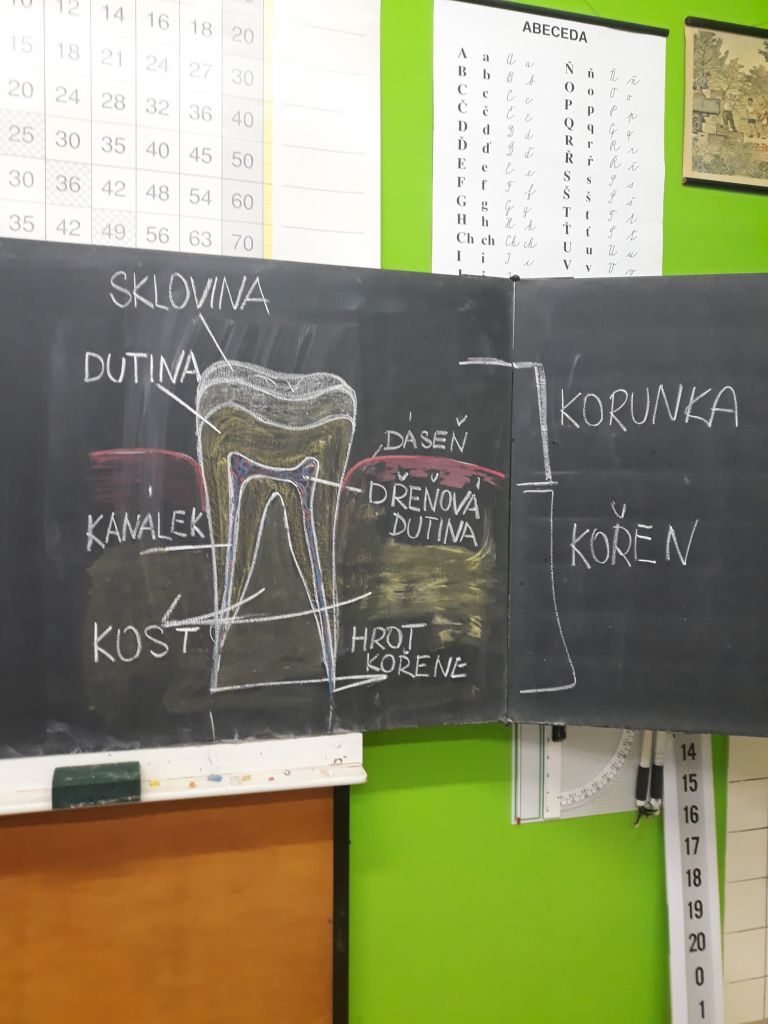 10 12 14 16 18 20
15 18 21 24 27 30
20 24 28 32 36 40
25 30 35 40 45 50
30 36 42 48 54 60
35 42 49 56 63 70
ABECEDA
A a
B b
C c
Č č
D d
Ď ď
E e
F f
G g
H h
Ch ch
I i
Ň ň
O o
P p
Q q
R r
Ř ř
S s
Š š
T t
Ť ť
U u
V v
SKLOVINA
DUTINA
DÁSEŇ
KANÁLEK
DŘEŇOVÁ
DUTINA
KOST
HROT
KOŘENE
KORUNKA
KOŘEN
14
15
16
17
18
19
20
0
1